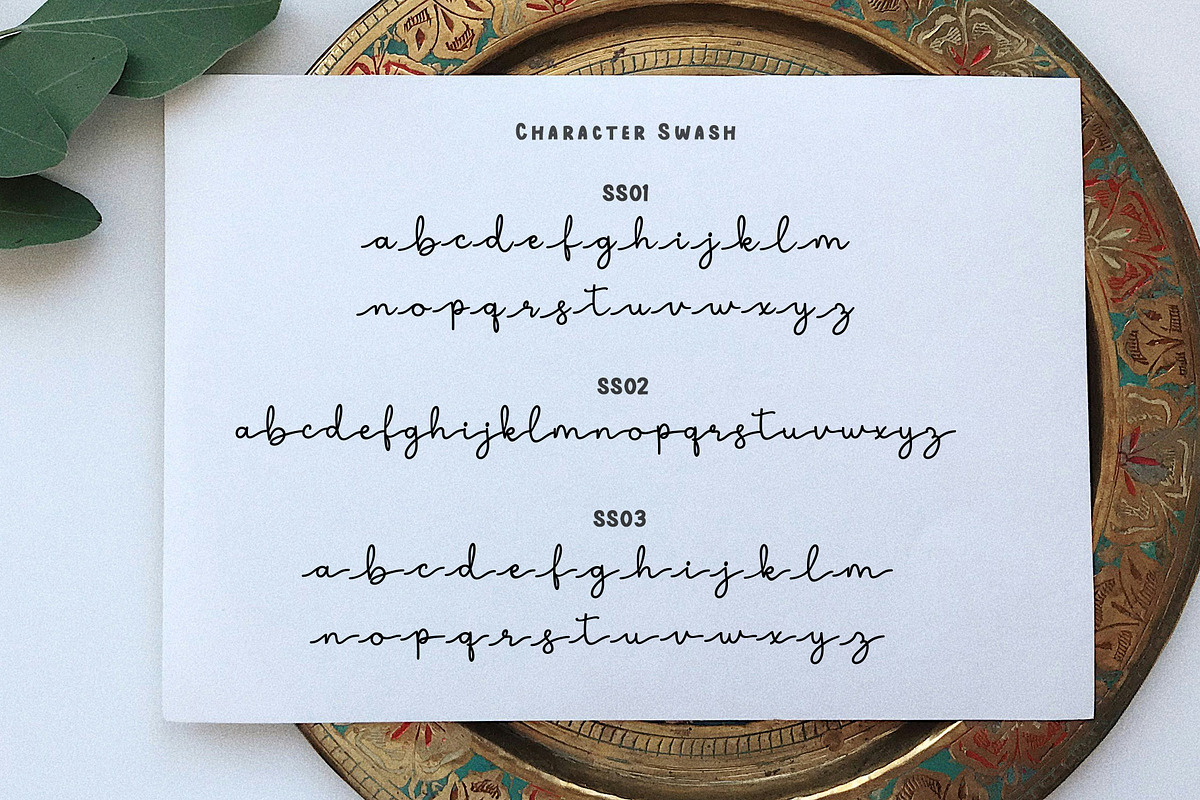 Character Swash
SS01
abcdefghijklm
nopqrstuvwxyz
SS02
abcdefghijklmnopqrstuvwxyz
SS03
abcdefghijklm
nopqrstuvwxyz